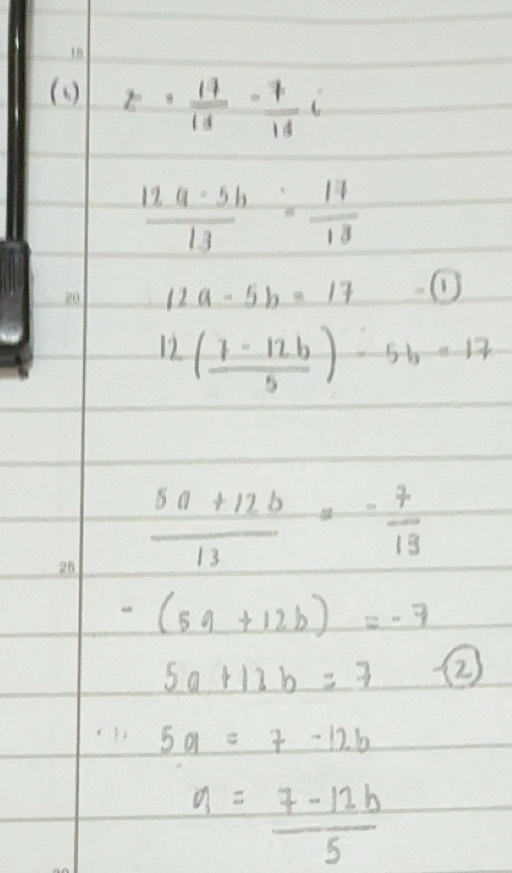 18
(c) z = 17/13 - 7/13 i
(12a - 5b)/13 = 17/13
20
12a - 5b = 17 - ①
12((7 - 12b)/5) - 5b = 17
(5a + 12b)/13 = - 7/13
25
- (5a + 12b) = - 7
5a + 12b = 7 - ②
5a = 7 - 12b
a = (7 - 12b)/5